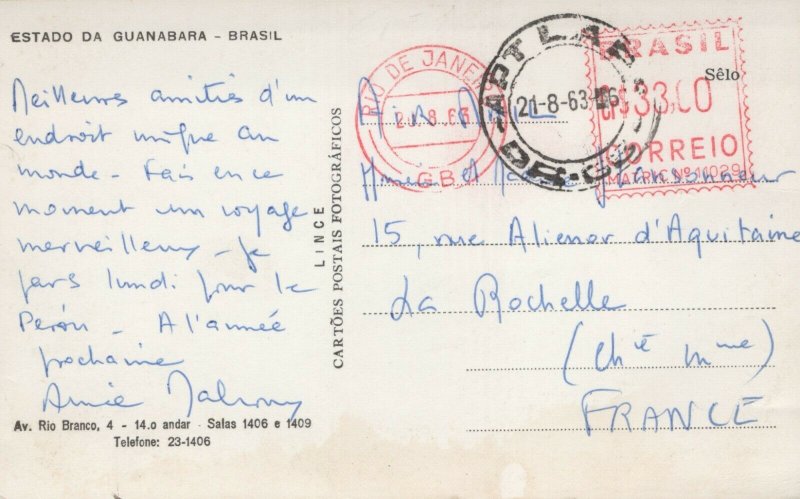 ESTADO DA GUANABARA - BRASIL
Meilleures amitiés d'un
endroit unique au
monde - Fais en ce
moment un voyage
merveilleux - Je
pars lundi pour le
Pérou - A l'année
prochaine
Annie
Av. Rio Branco, 4 - 14.o andar - Salas 1406 e 1409
Telefone: 23-1406
LINCE
CARTÕES POSTAIS FOTOGRÁFICOS
RIO DE JANEIRO
8 63
GB
21-8-63
BRASIL
Sêlo
CR$ 33,00
CORREIO
MATRIC Nº 11029
AIR MAIL
15, rue Alienor d'Aquitaine
La Rochelle
(Chte Mme)
FRANCE